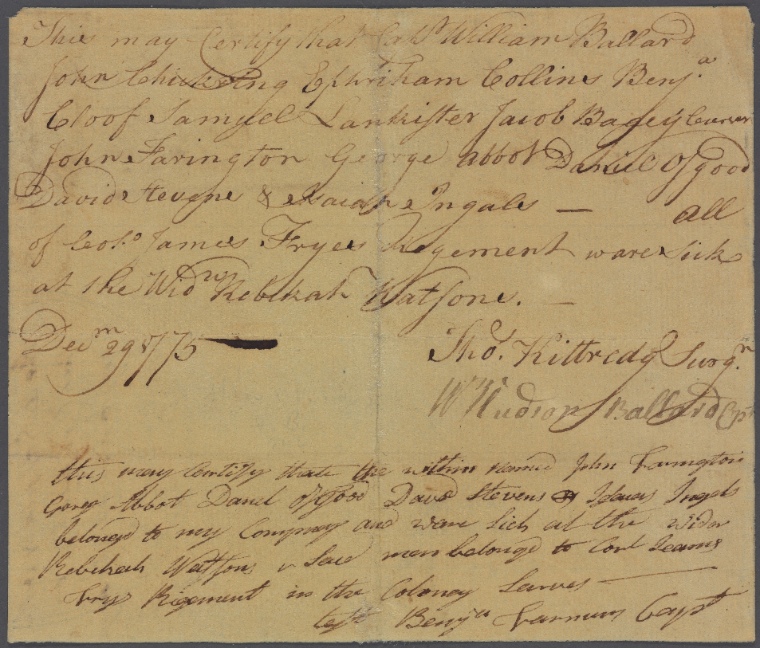 This may Certify that Capt William Ballard
John Chickering Ephriham Collins Benja
Cloof Samuel Lankister Jacob Bagey
John Farington George abbot Daniel Osgood
David Stevens & Isaiah Ingals — all
of Colo James Fryes Regement ware sick
at the Widw Rebekah Watsons. —
Decm 29 1775
Tho. Kittredg Surgn
Wm Hudson Ballard Cpt
this may Certify that the within named John Farington
Georg Abbot Danel osgood David Stevens & Ingals
belongd to my Company and ware Sick at the widow
Rebekah Watsons & Said men belongd to Corl Jeams
frys Rigement in the Coloney Sarves
test Benja Varnum Capt